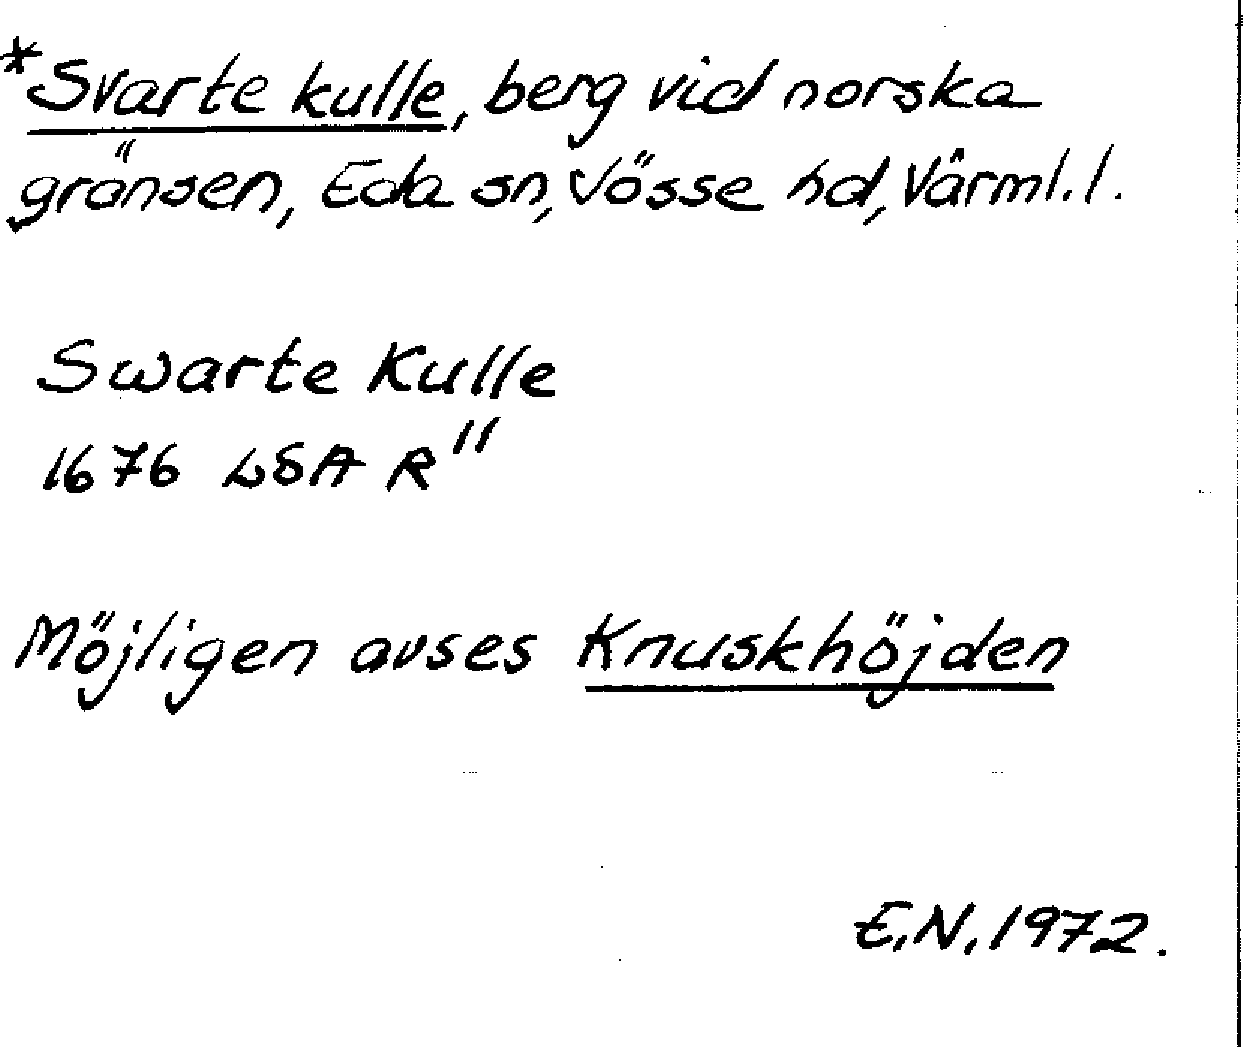 *Svarte kulle, berg vid norska
gränsen, Eda sn, Jösse hd, Värml. l.
Swarte Kulle
1676 LSA R"
Möjligen avses Knuskhöjden
E.N. 1972.